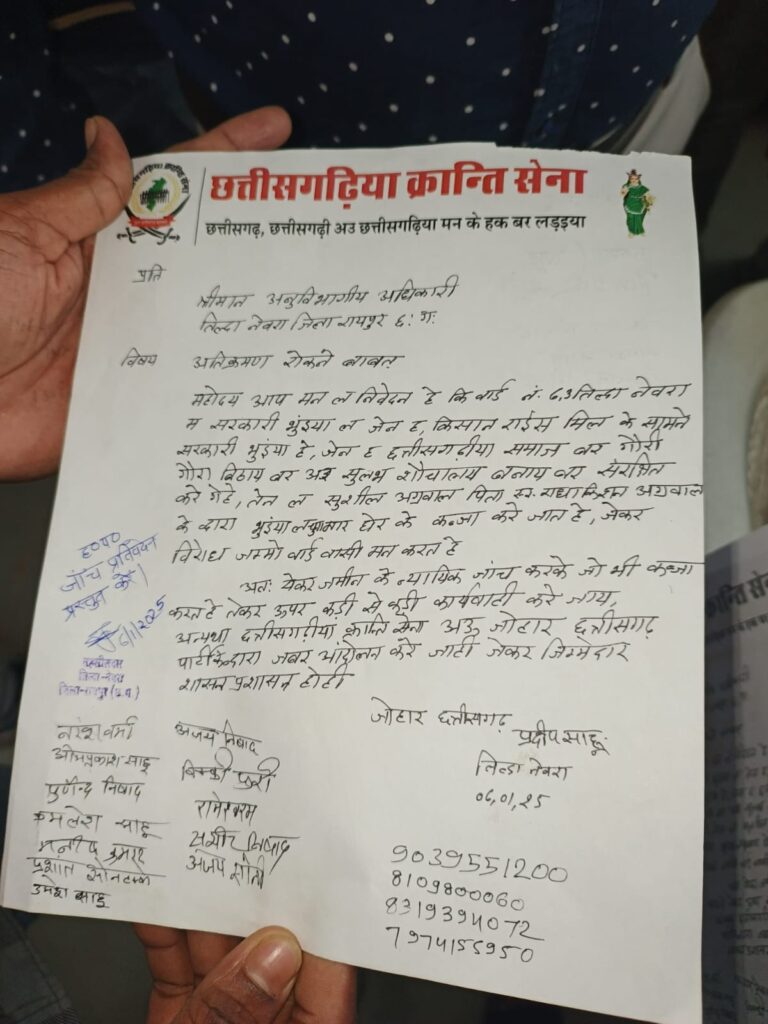 छत्तीसगढ़िया क्रान्ति सेना
छत्तीसगढ़, छत्तीसगढ़ी अउ छत्तीसगढ़िया मन के हक बर लड़इया
प्रति
श्रीमान अनुविभागीय अधिकारी
तिल्दा नेवरा जिला रायपुर छ.ग.
विषय अतिक्रमण रोकने बाबत्
महोदय आप मन ल निवेदन हे कि वार्ड नं. 6,3 तिल्दा नेवरा
म सरकारी भुंइया ल जेन ह, किसान राईस मिल के सामने
सरकारी भुंइया हे, जेन ह छत्तीसगढ़ीया समाज बर गौरी
गौरा बिठाय बर अउ सुलभ शौचालय बनाय बर संरक्षित
करे गेहे, तेन ल सुशील अग्रवाल पिता स्व. राधाकिशन अग्रवाल
के द्वारा भुंइया होर के कब्जा करे जात हे, जेकर
विरोध जम्मो वार्ड वासी मन करत हे
अतः येकर जमीन के न्यायिक जांच करके जो भी कब्जा
करत हे तेकर ऊपर कड़ी से कड़ी कार्यवाही करे जाय,
अन्यथा छत्तीसगढ़ीया क्रान्ति सेना अऊ जोहार छत्तीसगढ़
पार्टी के द्वारा जबर आंदोलन करे जाही जेकर जिम्मेदार
शासन प्रशासन होही
जांच प्रतिवेदन
प्रस्तुत करें।
6/1/2025
जोहार छत्तीसगढ़
प्रदीप साहू
तिल्दा नेवरा
06,01,25
नरेश वर्मा
ओमप्रकाश साहू
पुर्णेन्द्र निषाद
कमलेश साहू
मनीष कुमार
प्रशांत
उमेश साहू
अजय निषाद
विक्की पुरी
रामेश्वरम
समीर निषाद
अजय सोनी
9039551200
8109800060
8319394072
7974155950